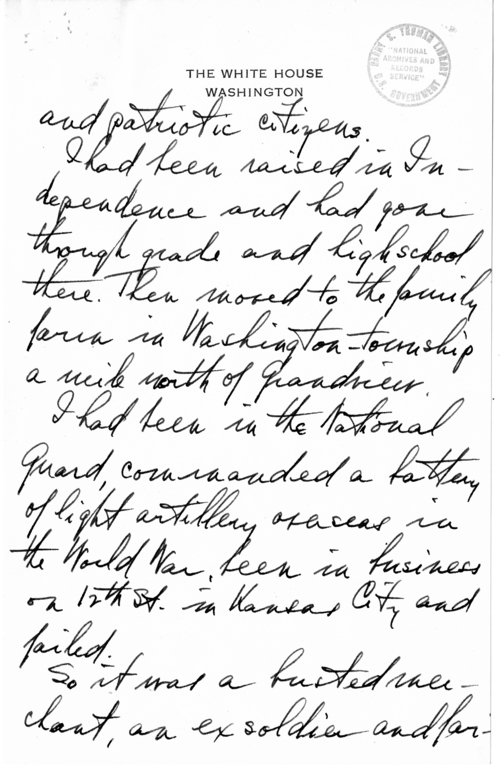 THE WHITE HOUSE
WASHINGTON
HARRY S. TRUMAN LIBRARY
"NATIONAL
ARCHIVES AND
RECORDS
SERVICE"
U.S. GOVERNMENT
and patriotic citizens.
I had been raised in In-
dependence and had gone
through grade and highschool
there. Then moved to the family
farm in Washington-township
a mile north of Grandview.
I had been in the National
Guard, commanded a battery
of light artillery overseas in
the World War, been in business
on 12th St. in Kansas City and
failed.
So it was a busted mer-
chant, an ex soldier and far-